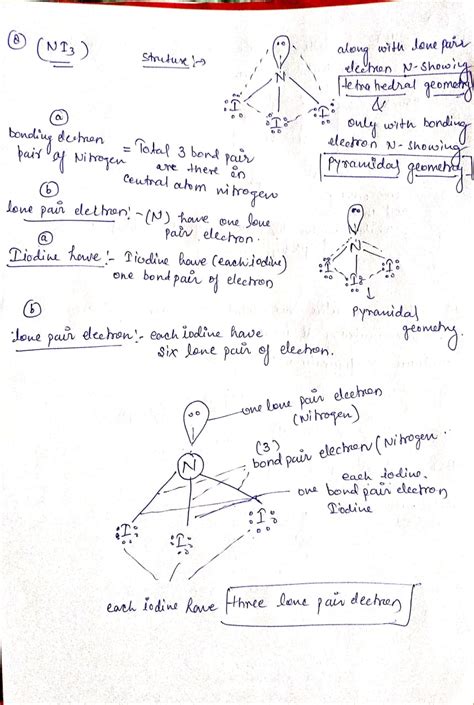 ⑧ (NI3) Struture :→
along with lone pair
electron N-showing
tetrahedral geometry
&
only with bonding
electron N-showing
Pyramidal geometry
N
I I I
ⓐ
bonding electron
pair of Nitrogen = Total 3 bond pair
are there in
central atom nitrogen
ⓑ
lone pair electron:- (N) have one lone
pair electron.
ⓐ
Iiodine have:- Iiodine have (each iodine)
one bond pair of electron
N
I I I
pyramidal
geometry.
ⓑ
lone pair electron:- each iodine have
six lone pair of electron.
one lone pair electron
(Nitrogen)
(3)
bond pair electron (Nitrogen
N
each iodine.
one bond pair electron
Iodine
I I I
each iodine have three lone pair electron